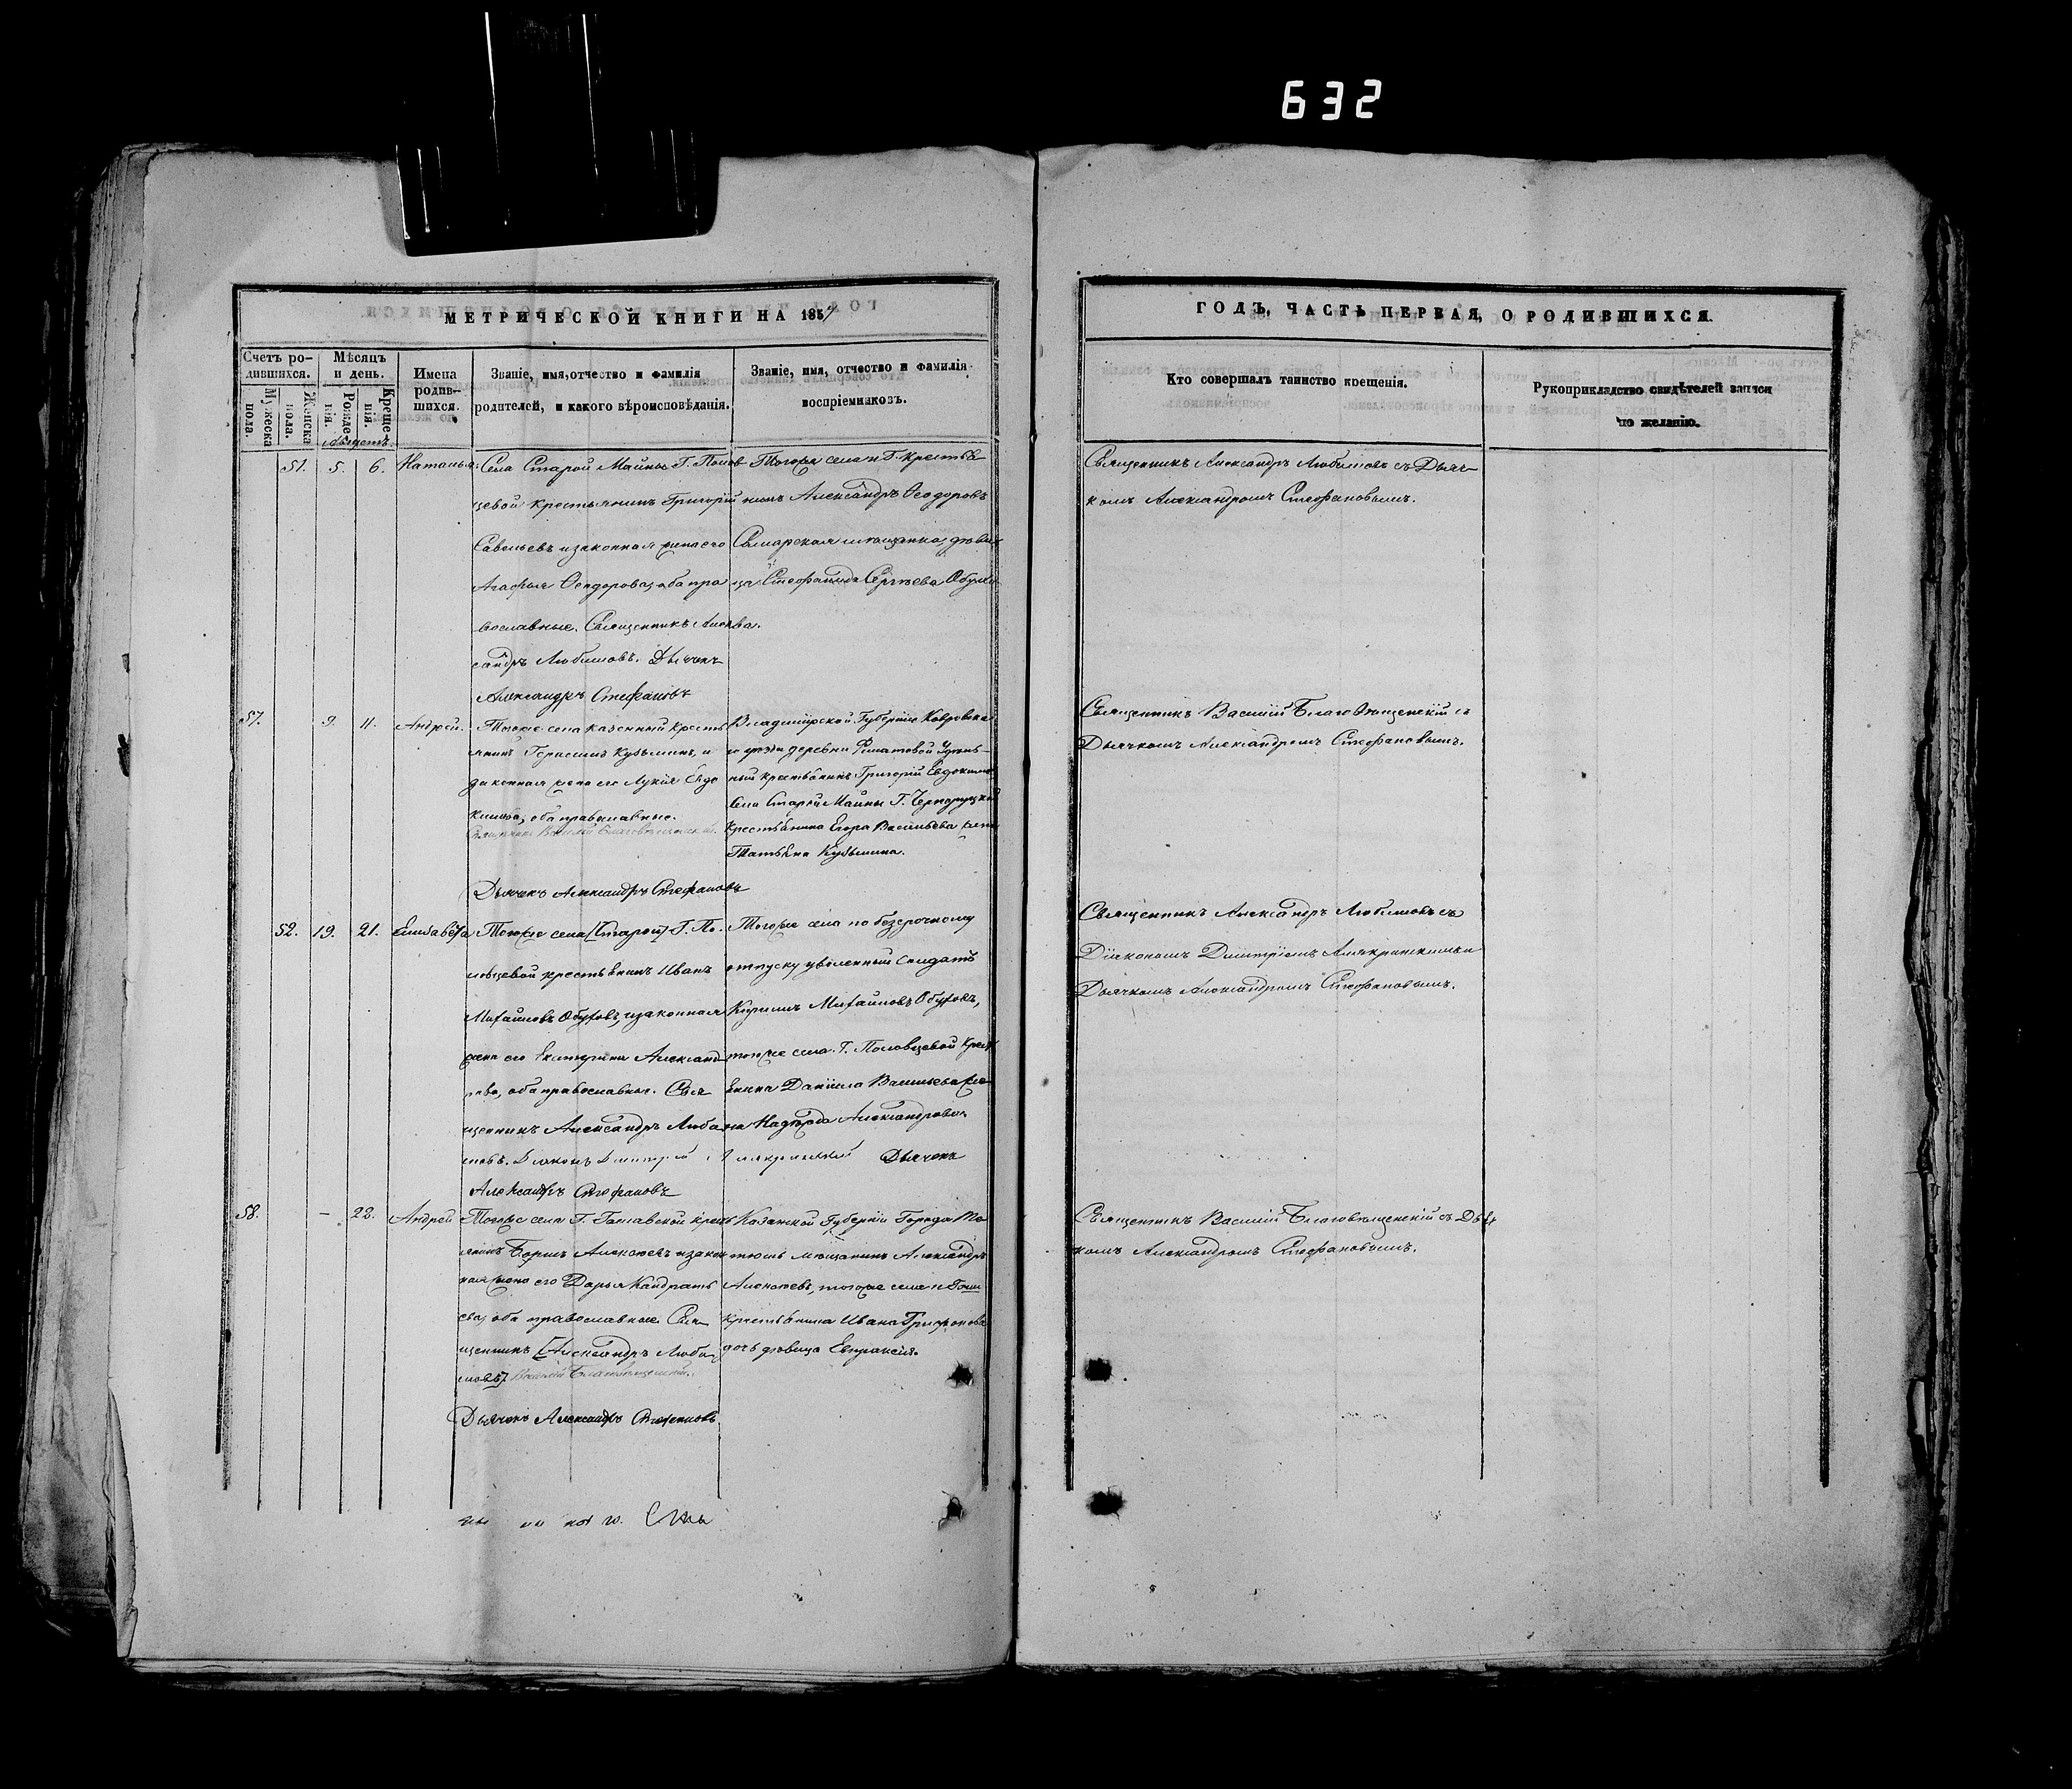 632
МЕТРИЧЕСКОЙ КНИГИ НА 1857
Счетъ ро-
дившихся.
Мужеска
пола.
Женска
пола.
Мѣсяцъ
и день.
Рожде
нія.
Креще
нія.
Имена
родив-
шихся.
Званіе, имя, отчество и фамилія
родителей, и какого вѣроисповѣданія.
Званіе, имя, отчество и фамилія
воспріемниковъ.
Августъ.
51. 5. 6. Наталья.
Села Старой Майны Г. Полов
цевой крестьянинъ Григорій
Савельевъ изаконная жена его
Агафья Ѳеодорова, оба пра
вославные. Священникъ Алек
сандръ Любимовъ. Дьячекъ
Александръ Стефановъ
Тогоже села и Г. крестья
нинъ Александръ Ѳеодоровъ
Самарская мѣщанка, дѣви
ца Стефанида Сергѣева Обухо
ва.
57. 9. 11. Андрей.
Тогоже села казенный кресть
янинъ Герасимъ Кузьминъ, и
законная жена его Лукія Евдо
кимова, оба православные.
Священникъ Василій Благовѣщенскій.
Дьячекъ Александръ Стефановъ
Владимірской Губерніи Ковровска
го уѣзда деревни Удѣль-
ный крестьянинъ Григорій Евдокимо
Села Старой Майны Г.
крестьянина Егора Васильева жена
Татьяна Кузьмина.
52. 19. 21. Елисавета
Тогоже села [Старой] Г. По-
ловцевой крестьянинъ Иванъ
Михайловъ Обуховъ, изаконная
жена его Екатерина Александ
рова, оба православные. Свя
щенникъ Александръ Люби
мовъ. Діаконъ Димитрій
Дьячекъ
Александръ Стефановъ
Тогоже села по безсрочному
отпуску уволенный солдатъ
Кирилъ Михайловъ Обуховъ,
тогоже села Г. Половцевой крест
янина Даніила Васильева же
на Надежда Александрова
58. - 22. Андрей
Тогоже села Г. крест
янинъ Борисъ Алексѣевъ изакон
ная жена его Дарья Кандрать
ева, оба православные. Свя
щенникъ [Александръ Люби
мовъ] Василій Благовѣщенскій.
Дьячекъ Александръ Стефановъ
Казанской Губерніи Города Те
тюшь мѣщанинъ Александръ
Алексѣевъ, тогоже села и
крестьянина Ивана Трифонова
дочь дѣвица Евпраксія.
ГОДЪ, ЧАСТЬ ПЕРВАЯ, О РОДИВШИХСЯ.
Кто совершалъ таинство крещенія.
Рукоприкладство свидѣтелей записи
по желанію.
Священникъ Александръ Любимовъ съ Дьяч-
комъ Александромъ Стефановымъ.
Священникъ Василій Благовѣщенскій съ
Дьячкомъ Александромъ Стефановымъ.
Священникъ Александръ Любимовъ съ
Діакономъ Димитріемъ
Дьячкомъ Александромъ Стефановымъ.
Священникъ Василій Благовѣщенскій съ Дьяч
комъ Александромъ Стефановымъ.